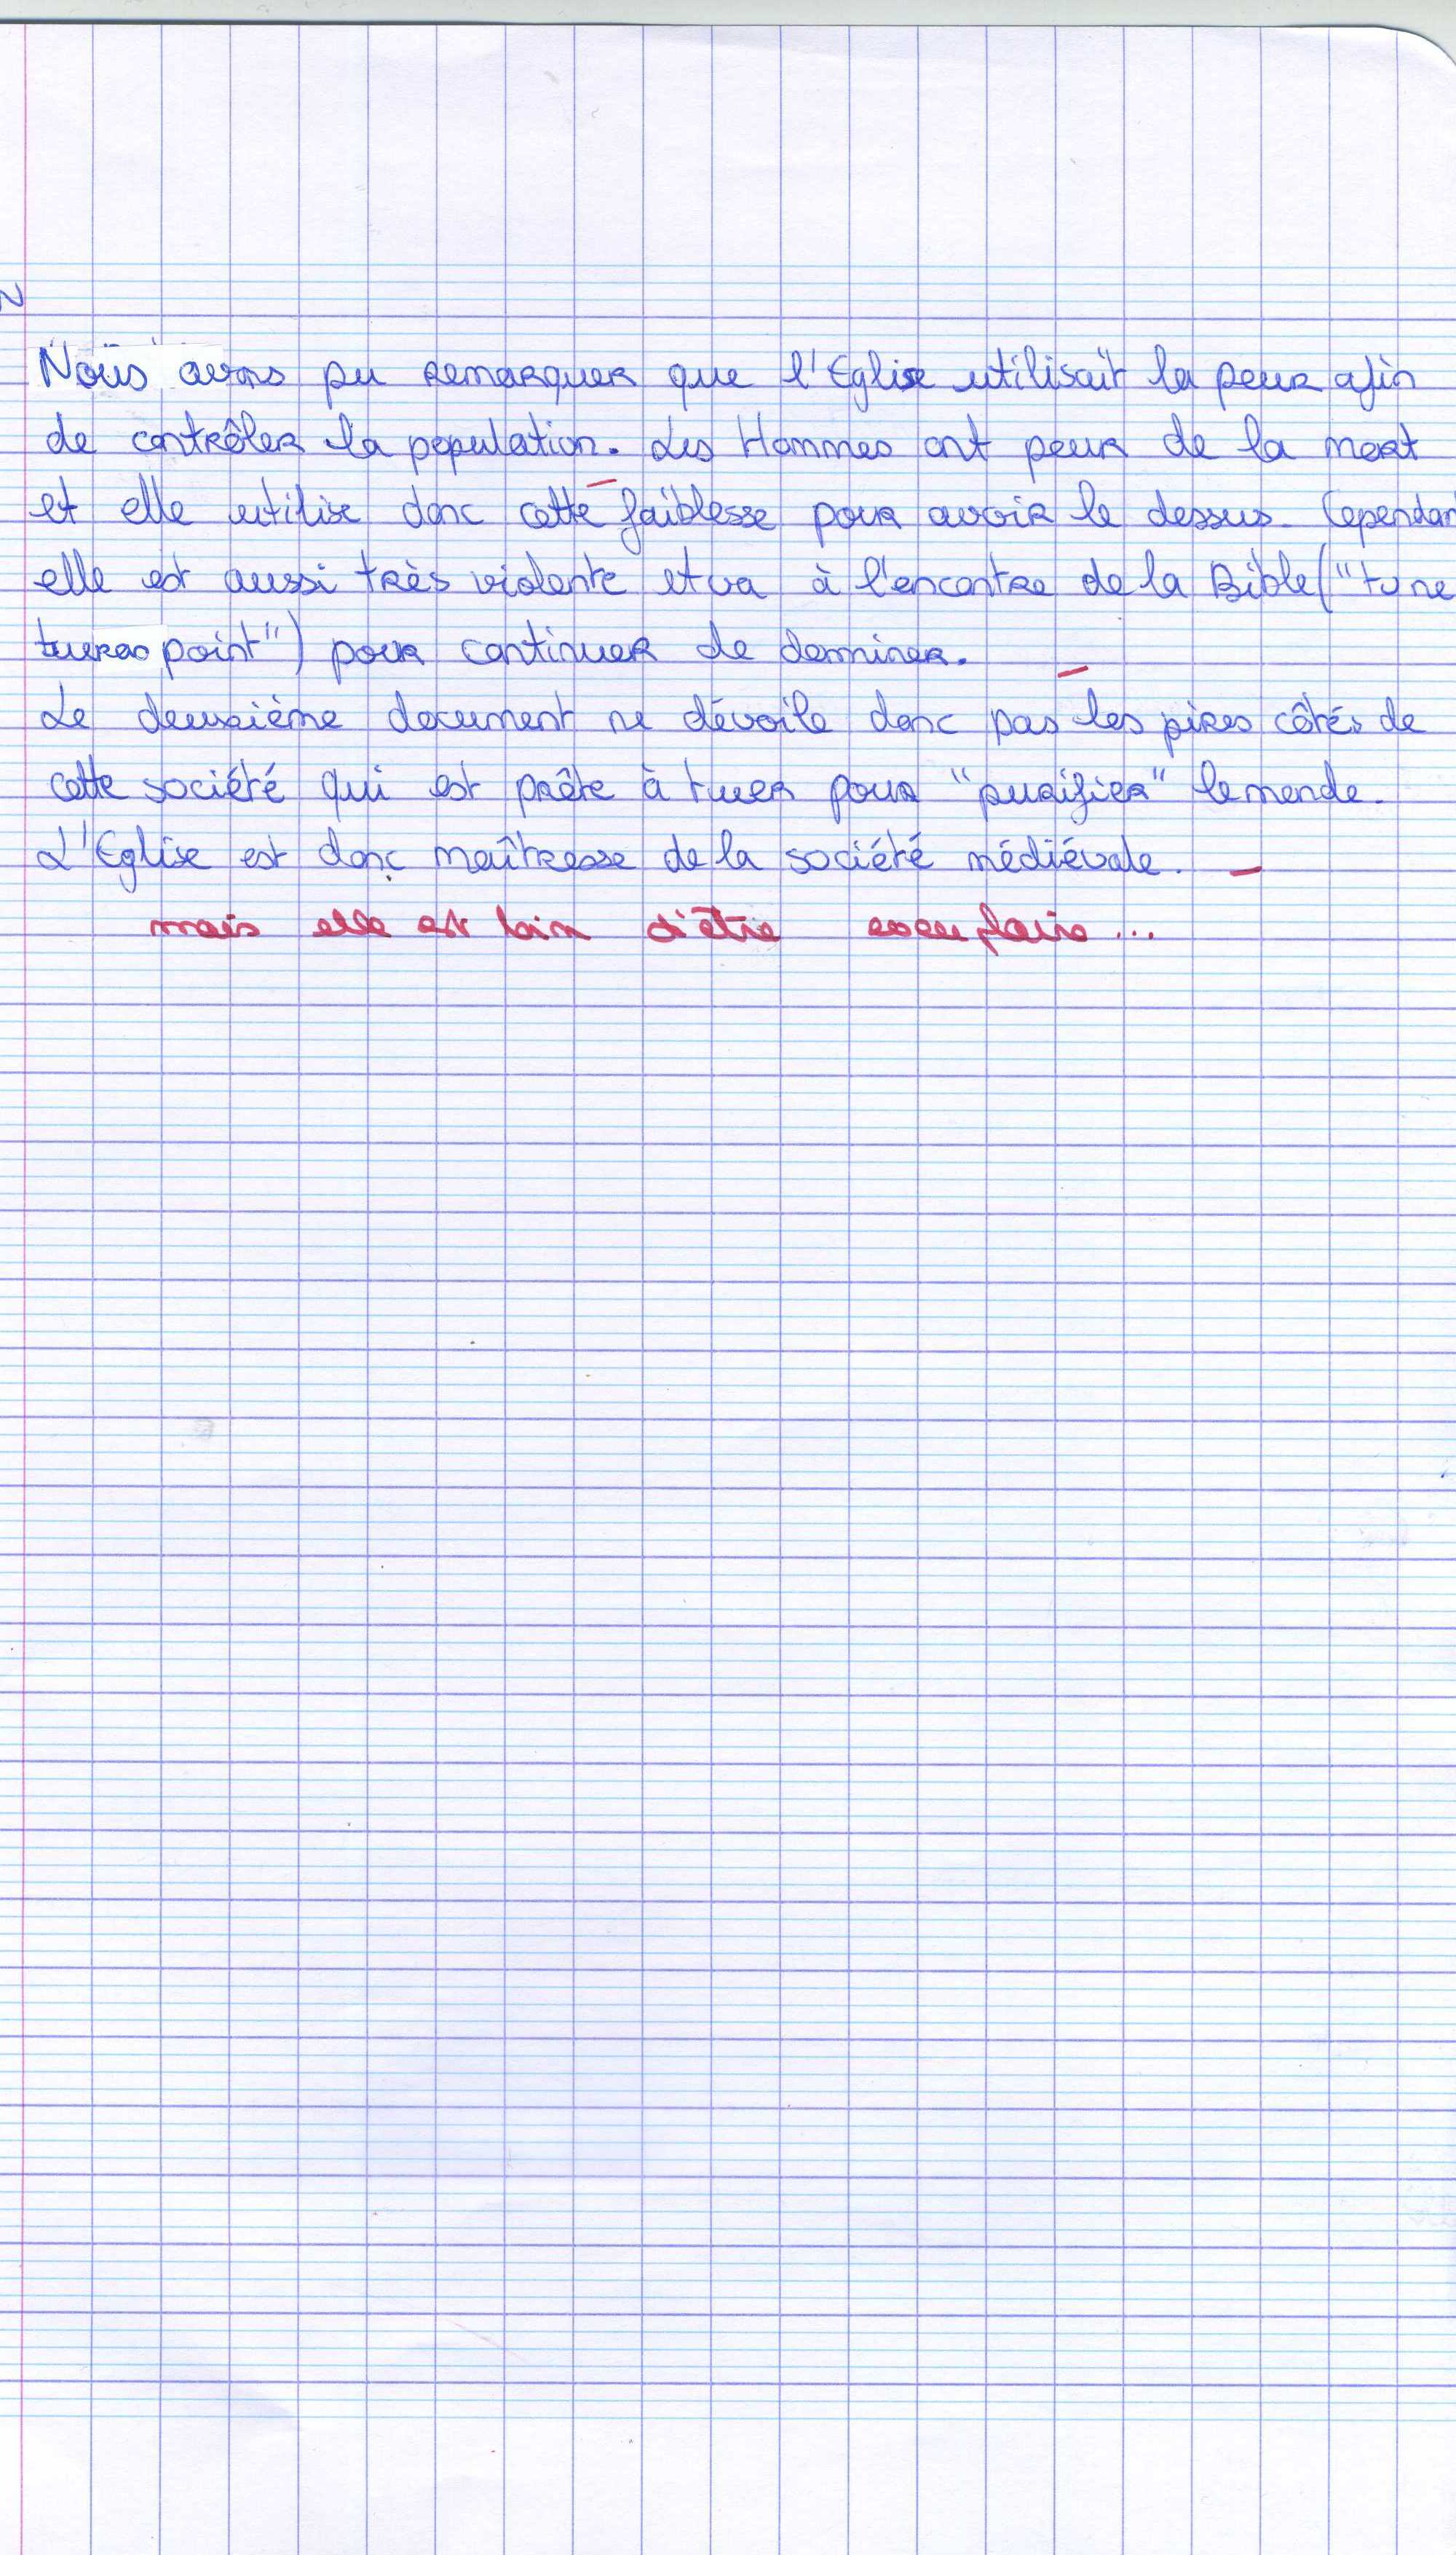 N
Nous avons pu remarquer que l'Eglise utilisait la peur afin
de contrôler la population. Les Hommes ont peur de la mort
et elle utilise donc cette faiblesse pour avoir le dessus. Cependan
elle est aussi très violente et va à l'encontre de la Bible ("tu ne
tueras point") pour continuer de dominer.
Le deuxième document ne dévoile donc pas les pires côtés de
cette société qui est prête à tuer pour "purifier" le monde.
L'Eglise est donc maîtresse de la société médiévale.
mais elle est loin d'être exemplaire...